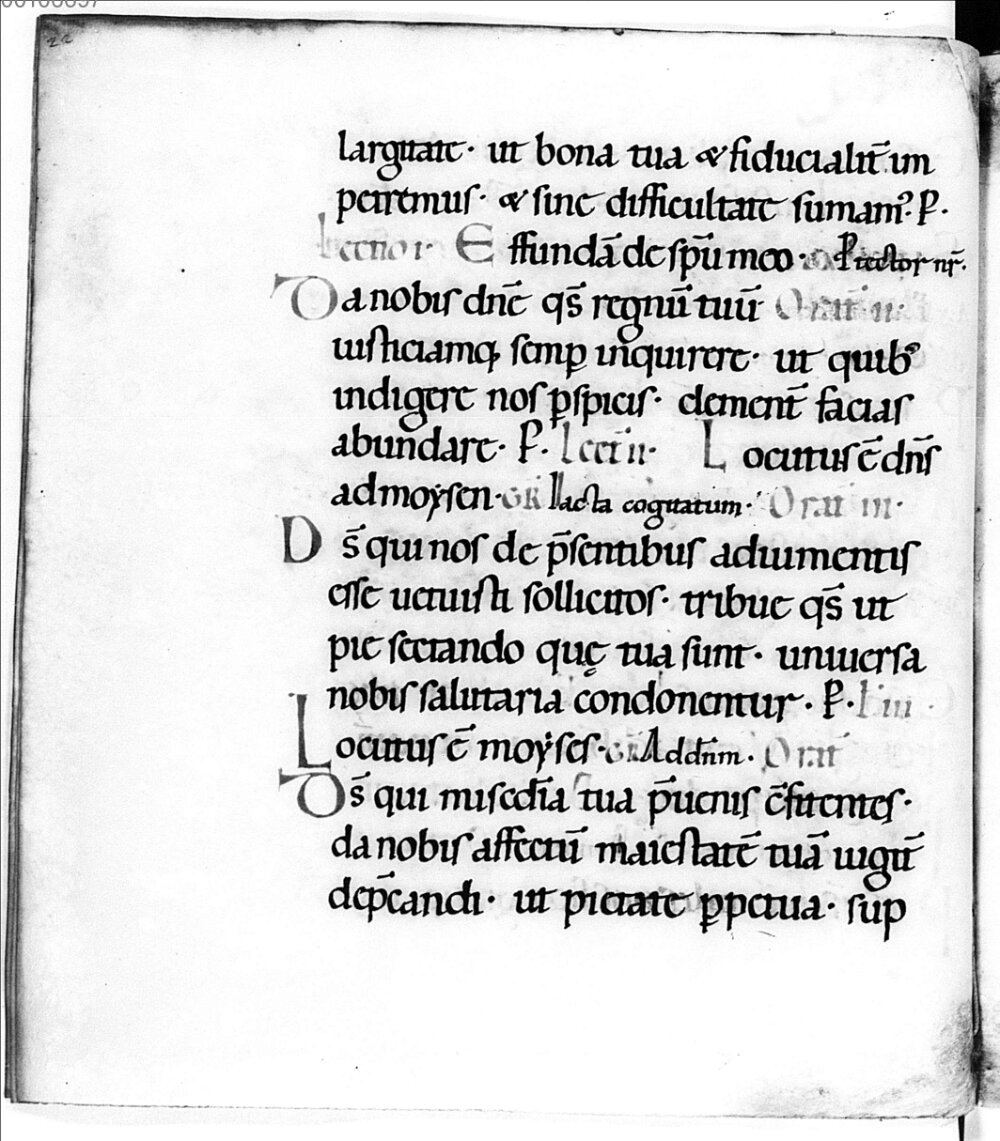 00100057
26
largitate· ut bona tua & fiducialit̄ im
petremus· & sine difficultate sumamꝰ· P·
Lectio i· Effundā de sp̄u meo· Gr̄ Ptector nr̄·
Da nobis dn̄e qs̄ regnū tuū Orat̄ ii·
iusticiamq; semꝑ inquirere· ut quibꝰ
indigere nos ꝑspicis· clement̄ facias
abundare· P· Lect̄ ii· Locutus ē dn̄s
ad moẏsen· GR Iacta cogitatum· Orat̄ iii·
Ds̄ qui nos de p̄sentibus adiumentis
esse uetuisti sollicitos· tribue qs̄ ut
pie sectando quę tua sunt· uniuersa
nobis salutaria condonentur· P· L iii·
Locutus ē moẏses· GR Ad dn̄m· Orat̄
Ds̄ qui mis̄cdia tua p̄uenis c̄fitentes·
da nobis affectū maiestatē tuā iugit̄
dep̄candi· ut pietate ꝑpetua· sup